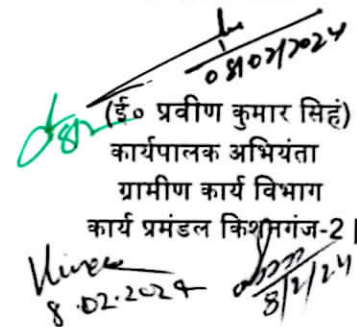 08/02/2024
8/2
(ई० प्रवीण कुमार सिहं)
कार्यपालक अभियंता
ग्रामीण कार्य विभाग
कार्य प्रमंडल किशनगंज-2।
8.02.2024
8/2/24